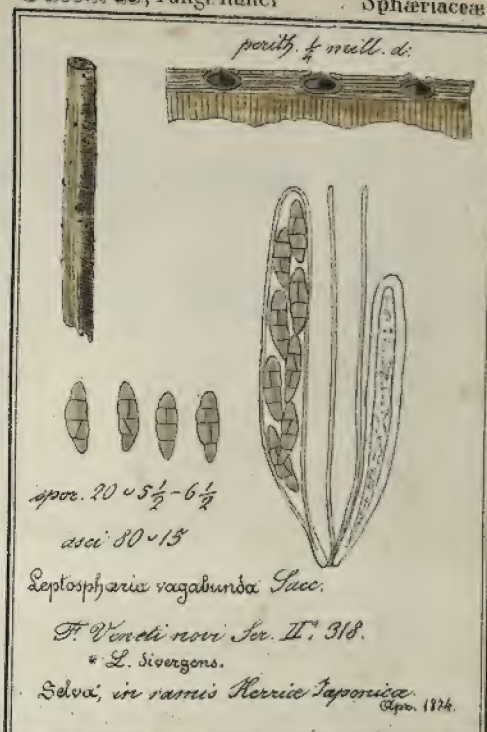 Fungi Italici Sphæriaceæ
perith. ¼ mill. d:
spor. 20 ᵕ 5½-6½
asci 80 ᵕ 15
Leptosphæria vagabunda Sacc.
F. Veneti novi Ser. IIª 318.
* L. divergens.
Selva, in ramis Kerriæ Japonicæ
Apr. 1874.